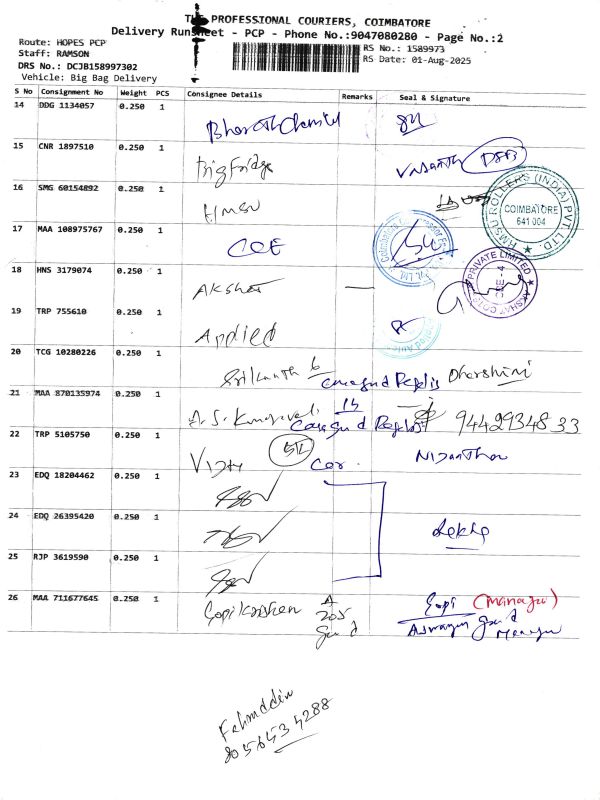 THE PROFESSIONAL COURIERS, COIMBATORE
Delivery Runsheet - PCP - Phone No.:9047080280 - Page No.:2
Route: HOPES PCP
Staff: RAMSON
DRS No.: DCJB158997302
Vehicle: Big Bag Delivery
RS No.: 1589973
RS Date: 01-Aug-2025
S No Consignment No Weight PCS Consignee Details Remarks Seal & Signature
14 DDG 1134057 0.250 1 Bharath Chemical
15 CNR 1897510 0.250 1 Bigfridge Vasanth DSB
16 SMG 60154892 0.250 1 HMSU
HMSU ROLLERS (INDIA) PVT. LTD.
COIMBATORE
641 004
17 MAA 108975767 0.250 1 COE
18 HNS 3179074 0.250 1 Akshar
PRIVATE LIMITED
19 TRP 755610 0.250 1 Applied
20 TCG 10280226 0.250 1 Srikanth Dharshini
21 MAA 870135974 0.250 1 9442934833
22 TRP 5105750 0.250 1 Vijay Nisanthan
23 EDQ 18204462 0.250 1
24 EDQ 26395420 0.250 1 Rekha
25 RJP 3619590 0.250 1
26 MAA 711677645 0.250 1 Gopikrishnan A 205 Gopi (Manager)
Fahruddin
8056434288